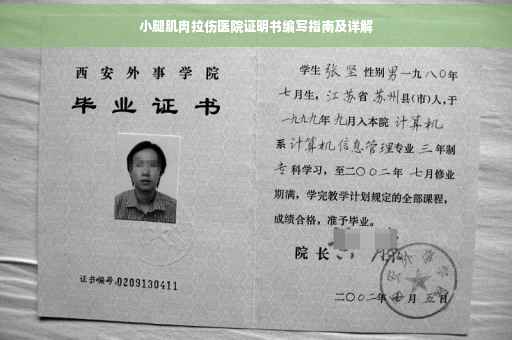 小腿肌肉拉伤医院证明书编写指南及详解
西安外事学院
毕业证书
证书编号:0209130411
学生 张坚 性别 男 一九八〇年
七月生，江苏省 苏州县(市)人,于
一九九九年 九月入本院 计算机
系 计算机信息管理专业 三 年制
专科学习，至二〇〇二年 七月修业
期满，学完教学计划规定的全部课程，
成绩合格，准予毕业。
院长
二〇〇二年 月 五日